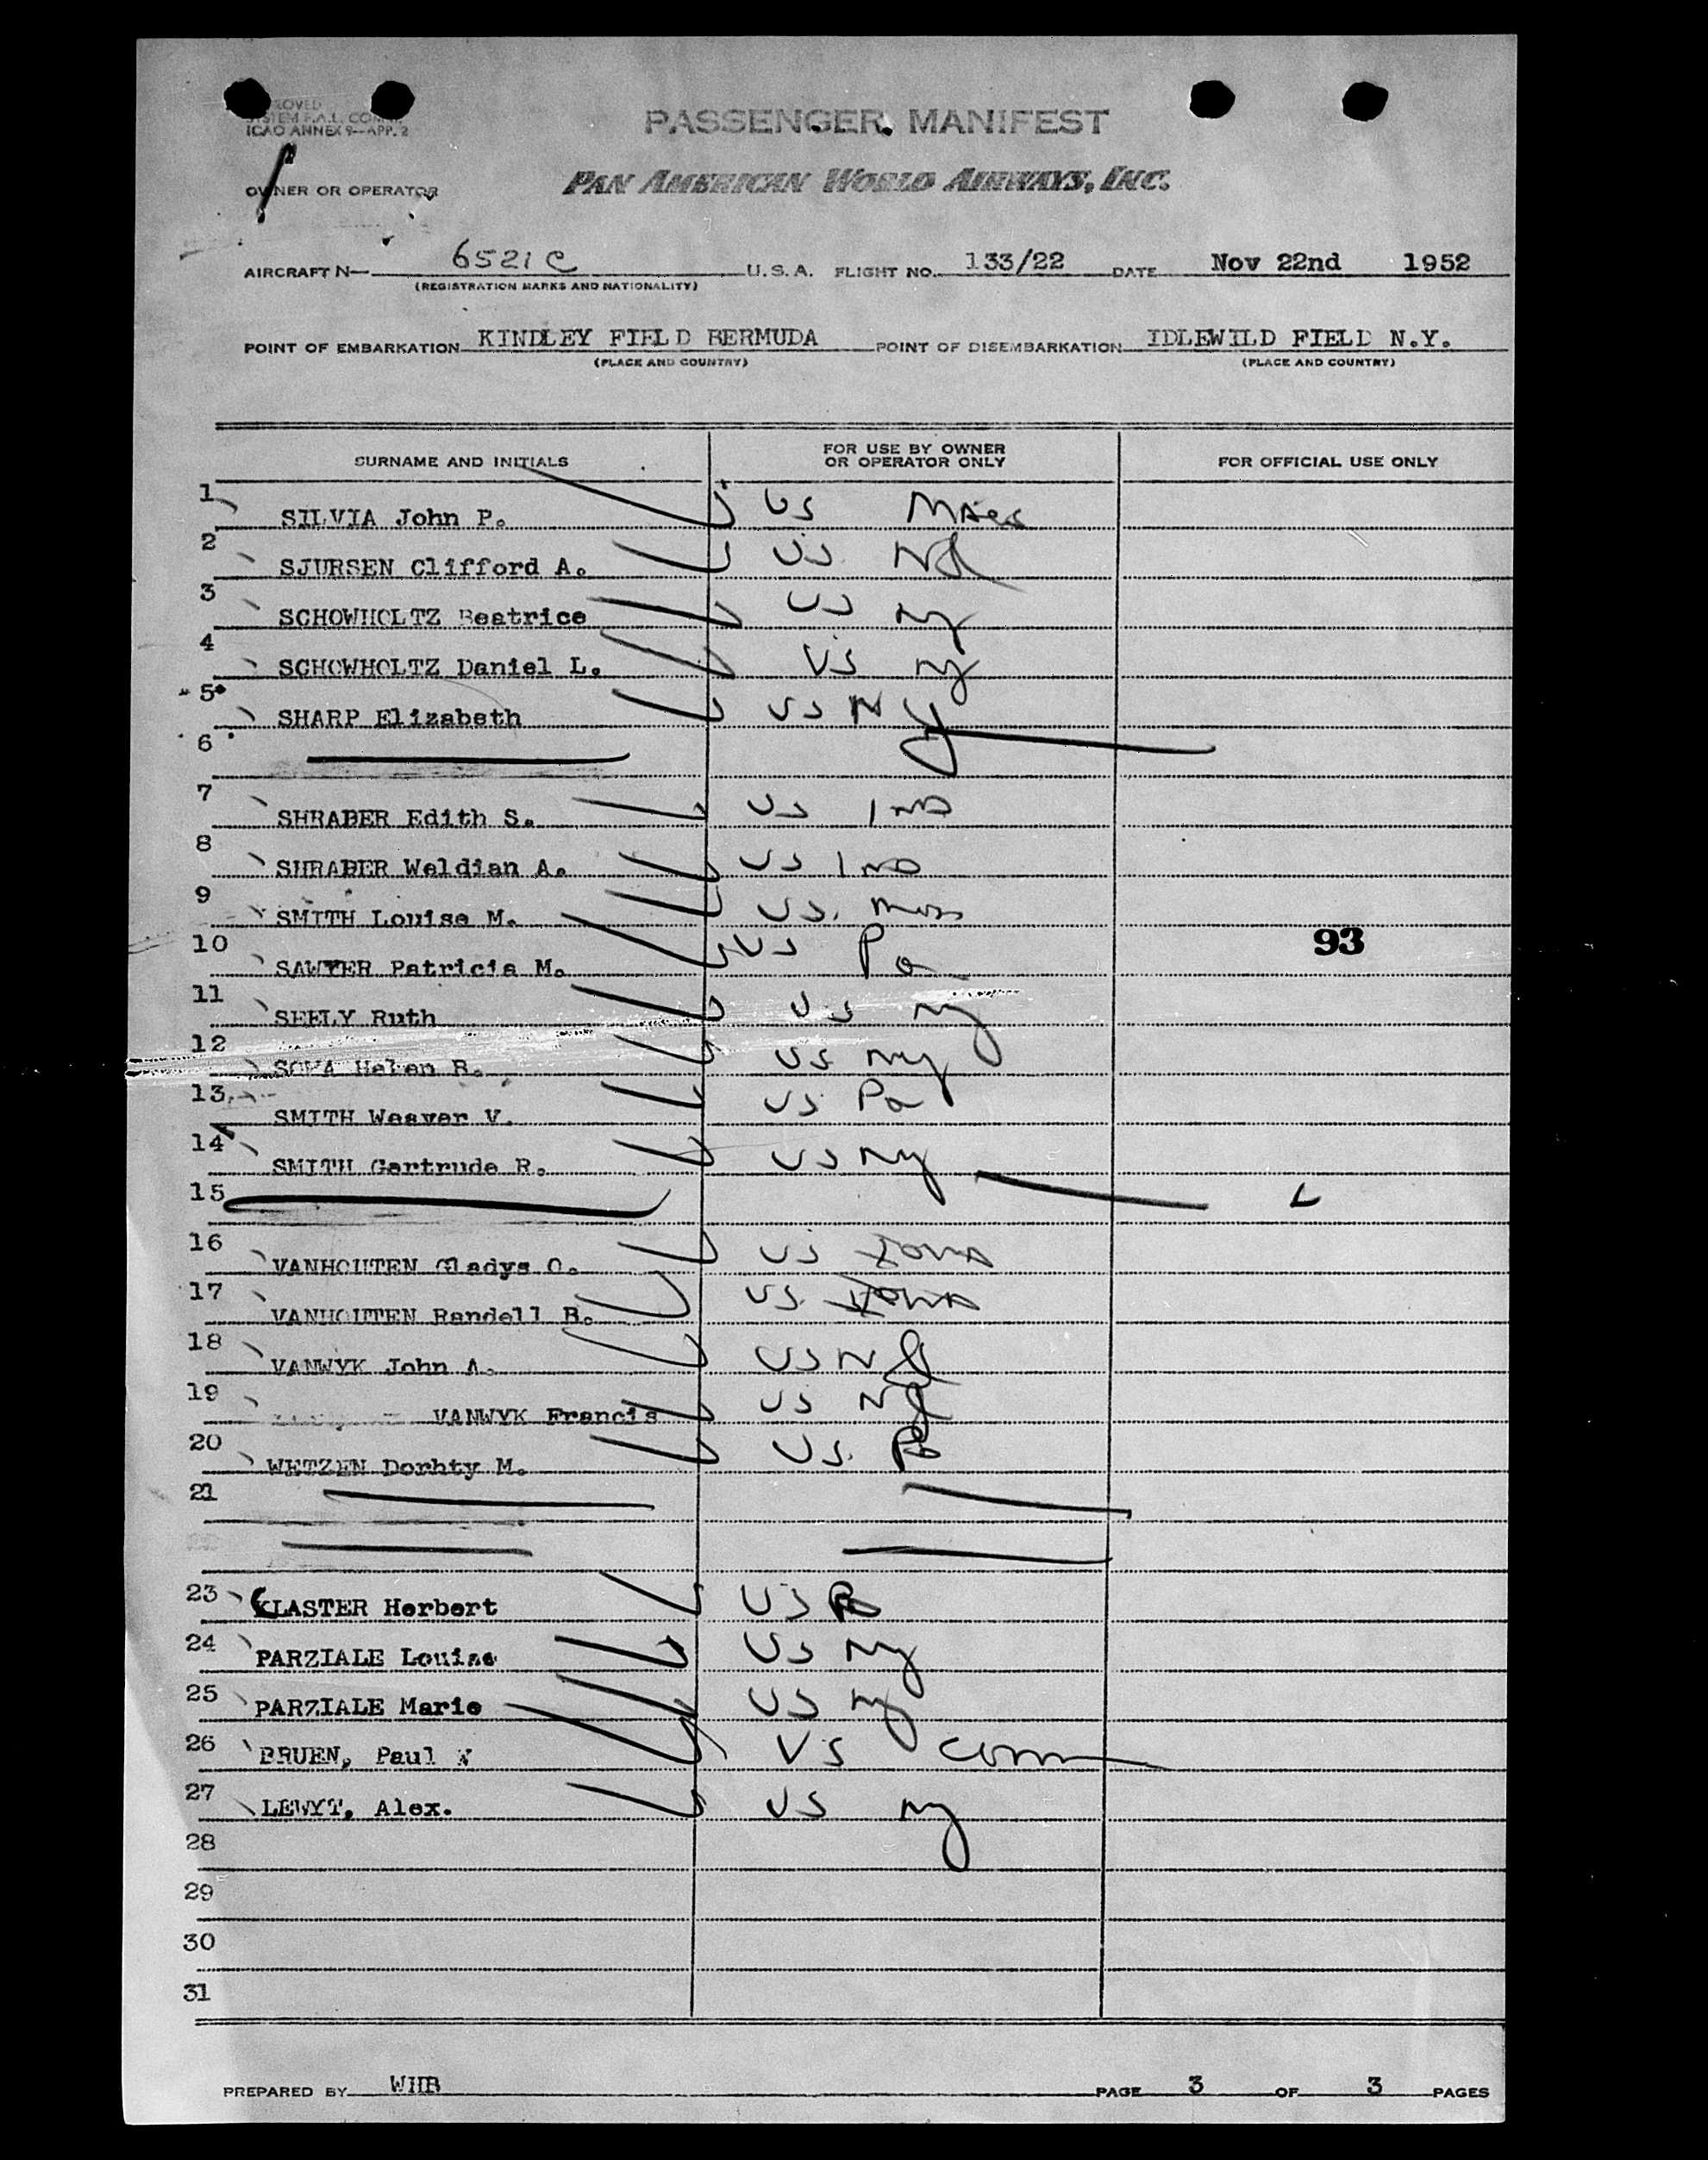 ROVED
SYSTEM F.A.L. COM
ICAO ANNEX 9—APP. 2
PASSENGER MANIFEST
OWNER OR OPERATOR PAN AMERICAN WORLD AIRWAYS, INC.
AIRCRAFT N— 6521C U.S.A. FLIGHT NO. 133/22 DATE Nov 22nd 1952
(REGISTRATION MARKS AND NATIONALITY)
POINT OF EMBARKATION KINDLEY FIELD BERMUDA POINT OF DISEMBARKATION IDLEWILD FIELD N.Y.
(PLACE AND COUNTRY) (PLACE AND COUNTRY)
SURNAME AND INITIALS FOR USE BY OWNER OR OPERATOR ONLY FOR OFFICIAL USE ONLY
1 SILVIA John P. US Mass
2 SJURSEN Clifford A. US NJ
3 SCHOWHOLTZ Beatrice US NY
4 SCHOWHOLTZ Daniel L. US NY
5 SHARP Elizabeth US NY
6
7 SHRABER Edith S. US IND
8 SHRABER Weldian A. US IND
9 SMITH Louise M. US. Mass
10 SAWYER Patricia M. US Pa 93
11 SEELY Ruth US NY
12 SOVA Helen B. US NY
13 SMITH Weaver V. US Pa
14 SMITH Gertrude R. US NY
15
16 VANHOUTEN Gladys O. US Iowa
17 VANHOUTEN Randell B. US Iowa
18 VANWYK John A. US NJ
19 VANWYK Francis US NJ
20 WETZEN Dorhty M. US. Pa
21
23 CLASTER Herbert US Pa
24 PARZIALE Louise US NY
25 PARZIALE Marie US NY
26 BRUEN, Paul W US Conn
27 LEWYT, Alex. US NY
28
29
30
31
PREPARED BY WHB PAGE 3 OF 3 PAGES